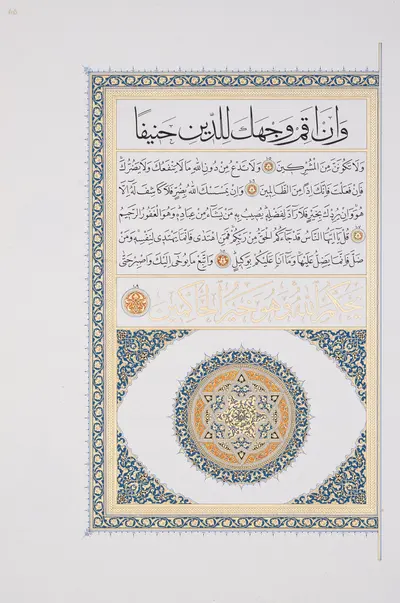 وَاَنْ اَقِمْ وَجْهَكَ لِلدّ۪ينِ حَن۪يفًا
وَلَا تَكُونَنَّ مِنَ الْمُشْرِك۪ينَ وَلَا تَدْعُ مِنْ دُونِ اللّٰهِ مَا لَا يَنْفَعُكَ وَلَا يَضُرُّكَ
فَاِنْ فَعَلْتَ فَاِنَّكَ اِذًا مِنَ الظَّالِم۪ينَ وَاِنْ يَمْسَسْكَ اللّٰهُ بِضُرٍّ فَلَا كَاشِفَ لَهُ اِلَّا
هُوَ وَاِنْ يُرِدْكَ بِخَيْرٍ فَلَا رَادَّ لِفَضْلِه۪ يُص۪يبُ بِه۪ مَنْ يَشَاءُ مِنْ عِبَادِه۪ وَهُوَ الْغَفُورُ الرَّح۪يمُ
قُلْ يَا اَيُّهَا النَّاسُ قَدْ جَاءَكُمُ الْحَقُّ مِنْ رَبِّكُمْ فَمَنِ اهْتَدٰى فَاِنَّمَا يَهْتَد۪ي لِنَفْسِه۪ وَمَنْ
ضَلَّ فَاِنَّمَا يَضِلُّ عَلَيْهَا وَمَا اَنَا عَلَيْكُمْ بِوَك۪يلٍ وَاتَّبِعْ مَا يُوحٰى اِلَيْكَ وَاصْبِرْ حَتّٰى
يَحْكُمَ اللّٰهُ وَهُوَ خَيْرُ الْحَاكِم۪ينَ